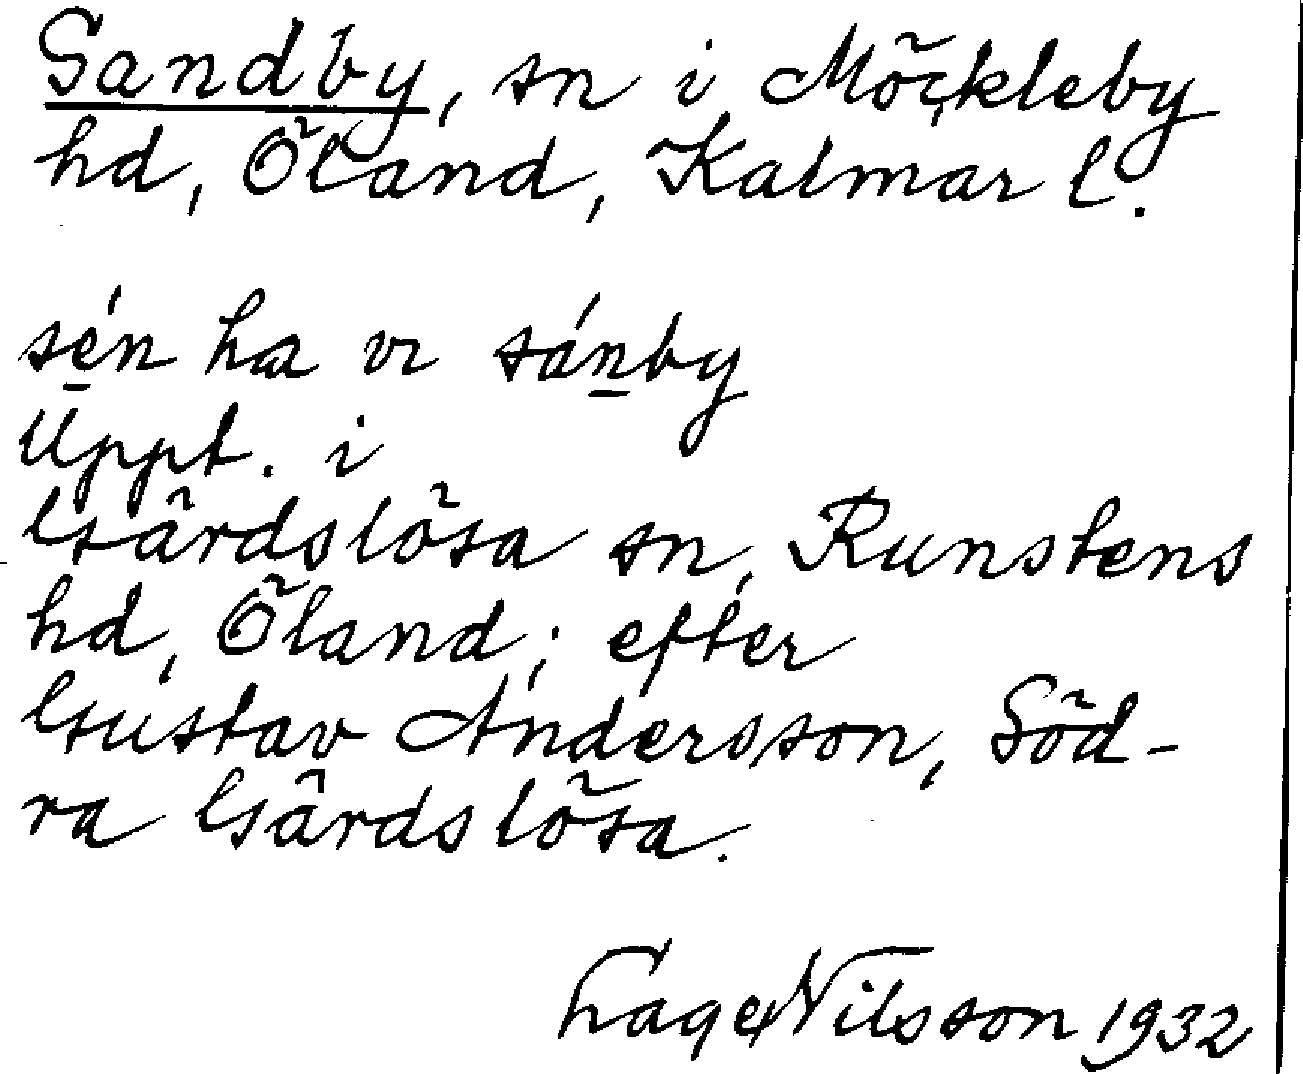 Sandby, sn i Möckleby
hd, Öland, Kalmar l.
sén ha vi sánby
Uppt. i
Gärdslösa sn, Runstens
hd, Öland; efter
Gustav Andersson, Söd-
ra Gärdslösa.
Lage Nilsson 1932